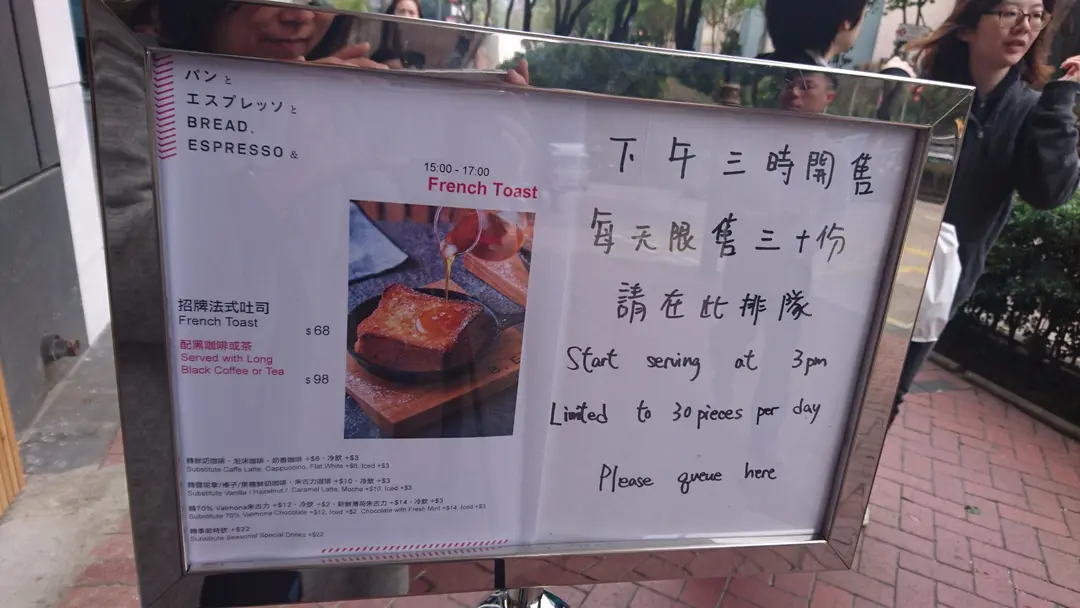 パンと
エスプレッソと
BREAD,
ESPRESSO &
15:00 - 17:00
French Toast
招牌法式吐司
French Toast
$68
配黑咖啡或茶
Served with Long
Black Coffee or Tea
$98
轉鮮奶咖啡、泡沫咖啡、奶香咖啡 +$8，冷飲 +$3
Substitute Caffe Latte, Cappuccino, Flat White +$8, Iced +$3
轉雲呢拿/榛子/焦糖鮮奶咖啡、朱古力咖啡 +$10，冷飲 +$3
Substitute Vanilla / Hazelnut / Caramel Latte, Mocha +$10, Iced +$3
轉70% Valrhona朱古力 +$12，冷飲 +$2，新鮮薄荷朱古力 +$14，冷飲 +$3
Substitute 70% Valrhona Chocolate +$12, Iced +$2, Chocolate with Fresh Mint +$14, Iced +$3
轉季節特飲 +$22
Substitute Seasonal Special Drinks +$22
下午三時開售
每天限售三十份
請在此排隊
Start serving at 3pm
Limited to 30 pieces per day
Please queue here